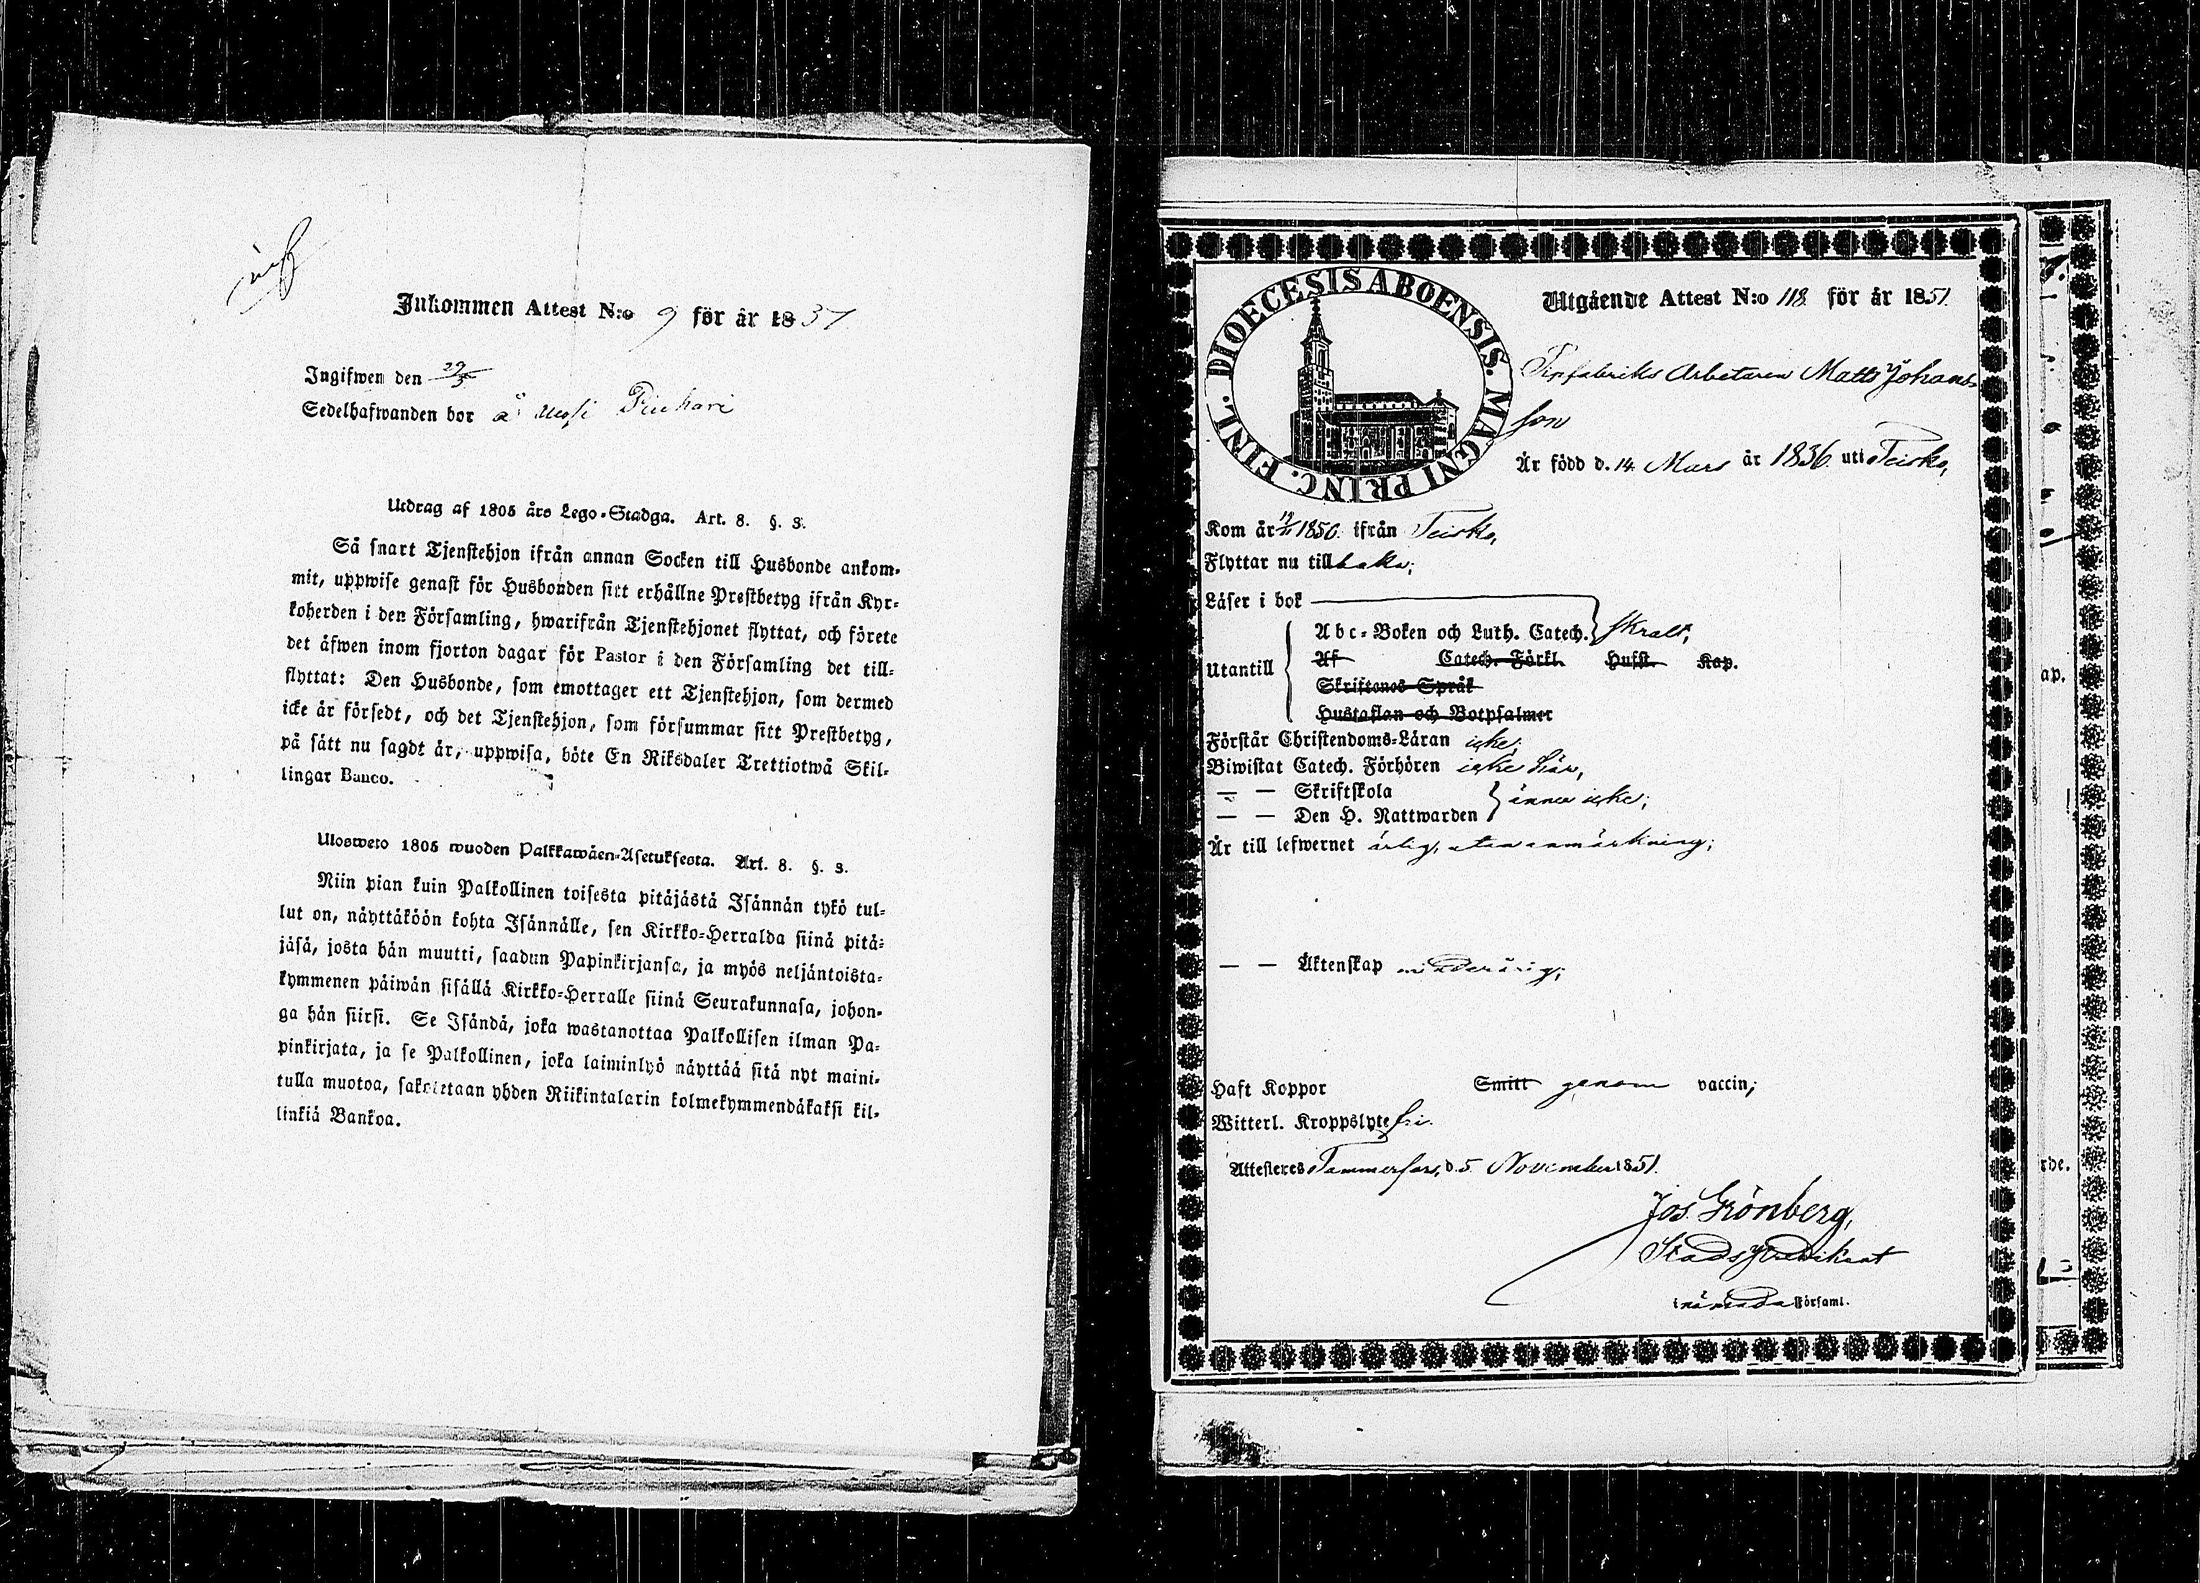 Inkommen Attest N:o 9 för år 1837
Ingifwen den 29/3
Sedelhafwanden bor å
Utdrag af 1805 års Lego-Stadga. Art. 8. §. 3.
Så snart Tjenstehjon ifrån annan Socken till Husbonde ankom-
mit, uppwise genast för Husbonden sitt erhållne Prestbetyg ifrån Kyr-
koherden i den Församling, hwarifrån Tjenstehjonet flyttat, och förete
det äfwen inom fjorton dagar för Pastor i den Församling det till-
flyttat: Den Husbonde, som emottager ett Tjenstehjon, som dermed
icke är försedt, och det Tjenstehjon, som försummar sitt Prestbetyg,
på sätt nu sagdt är, uppwisa, böte En Riksdaler Trettiotwå Skil-
lingar Banco.
Ulosweto 1805 wuoden Palkkawäen-Asetuksesta. Art. 8. §. 3.
Niin pian kuin Palkollinen toisesta pitäjästä Isännän tykö tul-
lut on, näyttäköön kohta Isännälle, sen Kirkko-Herralda siinä pitä-
jäsä, josta hän muutti, saadun Papinkirjansa, ja myös neljäntoista-
kymmenen päiwän sisällä Kirkko-Herralle siinä Seurakunnasa, johon-
ga hän siirsi. Se Isändä, joka wastanottaa Palkollisen ilman Pa-
pinkirjata, ja se Palkollinen, joka laiminlyö näyttää sitä nyt maini-
tulla muotoa, sakotetaan yhden Riikintalarin kolmekymmendäkaksi kil-
linkiä Bankoa.
DIOECESIS ABOENSIS. MAGNI PRINC. FINL.
Utgående Attest N:o 118 för år 1851.
Arbetaren Matts Johans-
son
Är född d. 14 Mars år 1836 uti Teisko,
Kom år 1850 ifrån Teisko,
Flyttar nu tillbaka;
Läser i bok
Abc-Boken och Luth. Catech. skralt,
Utantill
Af Catech. Förkl. Husst. Kap.
Skriftenes Språk
Hustaflan och Botpsalmer
Förstår Christendoms-Läran icke;
Biwistat Catech. Förhören icke här,
— — Skriftskola
— — Den H. Nattwarden ännu icke;
Är till lefwernet ärlig, utan anmärkning;
— — Äktenskap minderårig;
Haft Koppor Smitt genom vaccin;
Witterl. Kroppslyte fri.
Attesteres Tammerfors, d. 5 November 1851.
Jos. Grönberg,
Stads Predikant
i nämnda Församl.
ap.
rde.